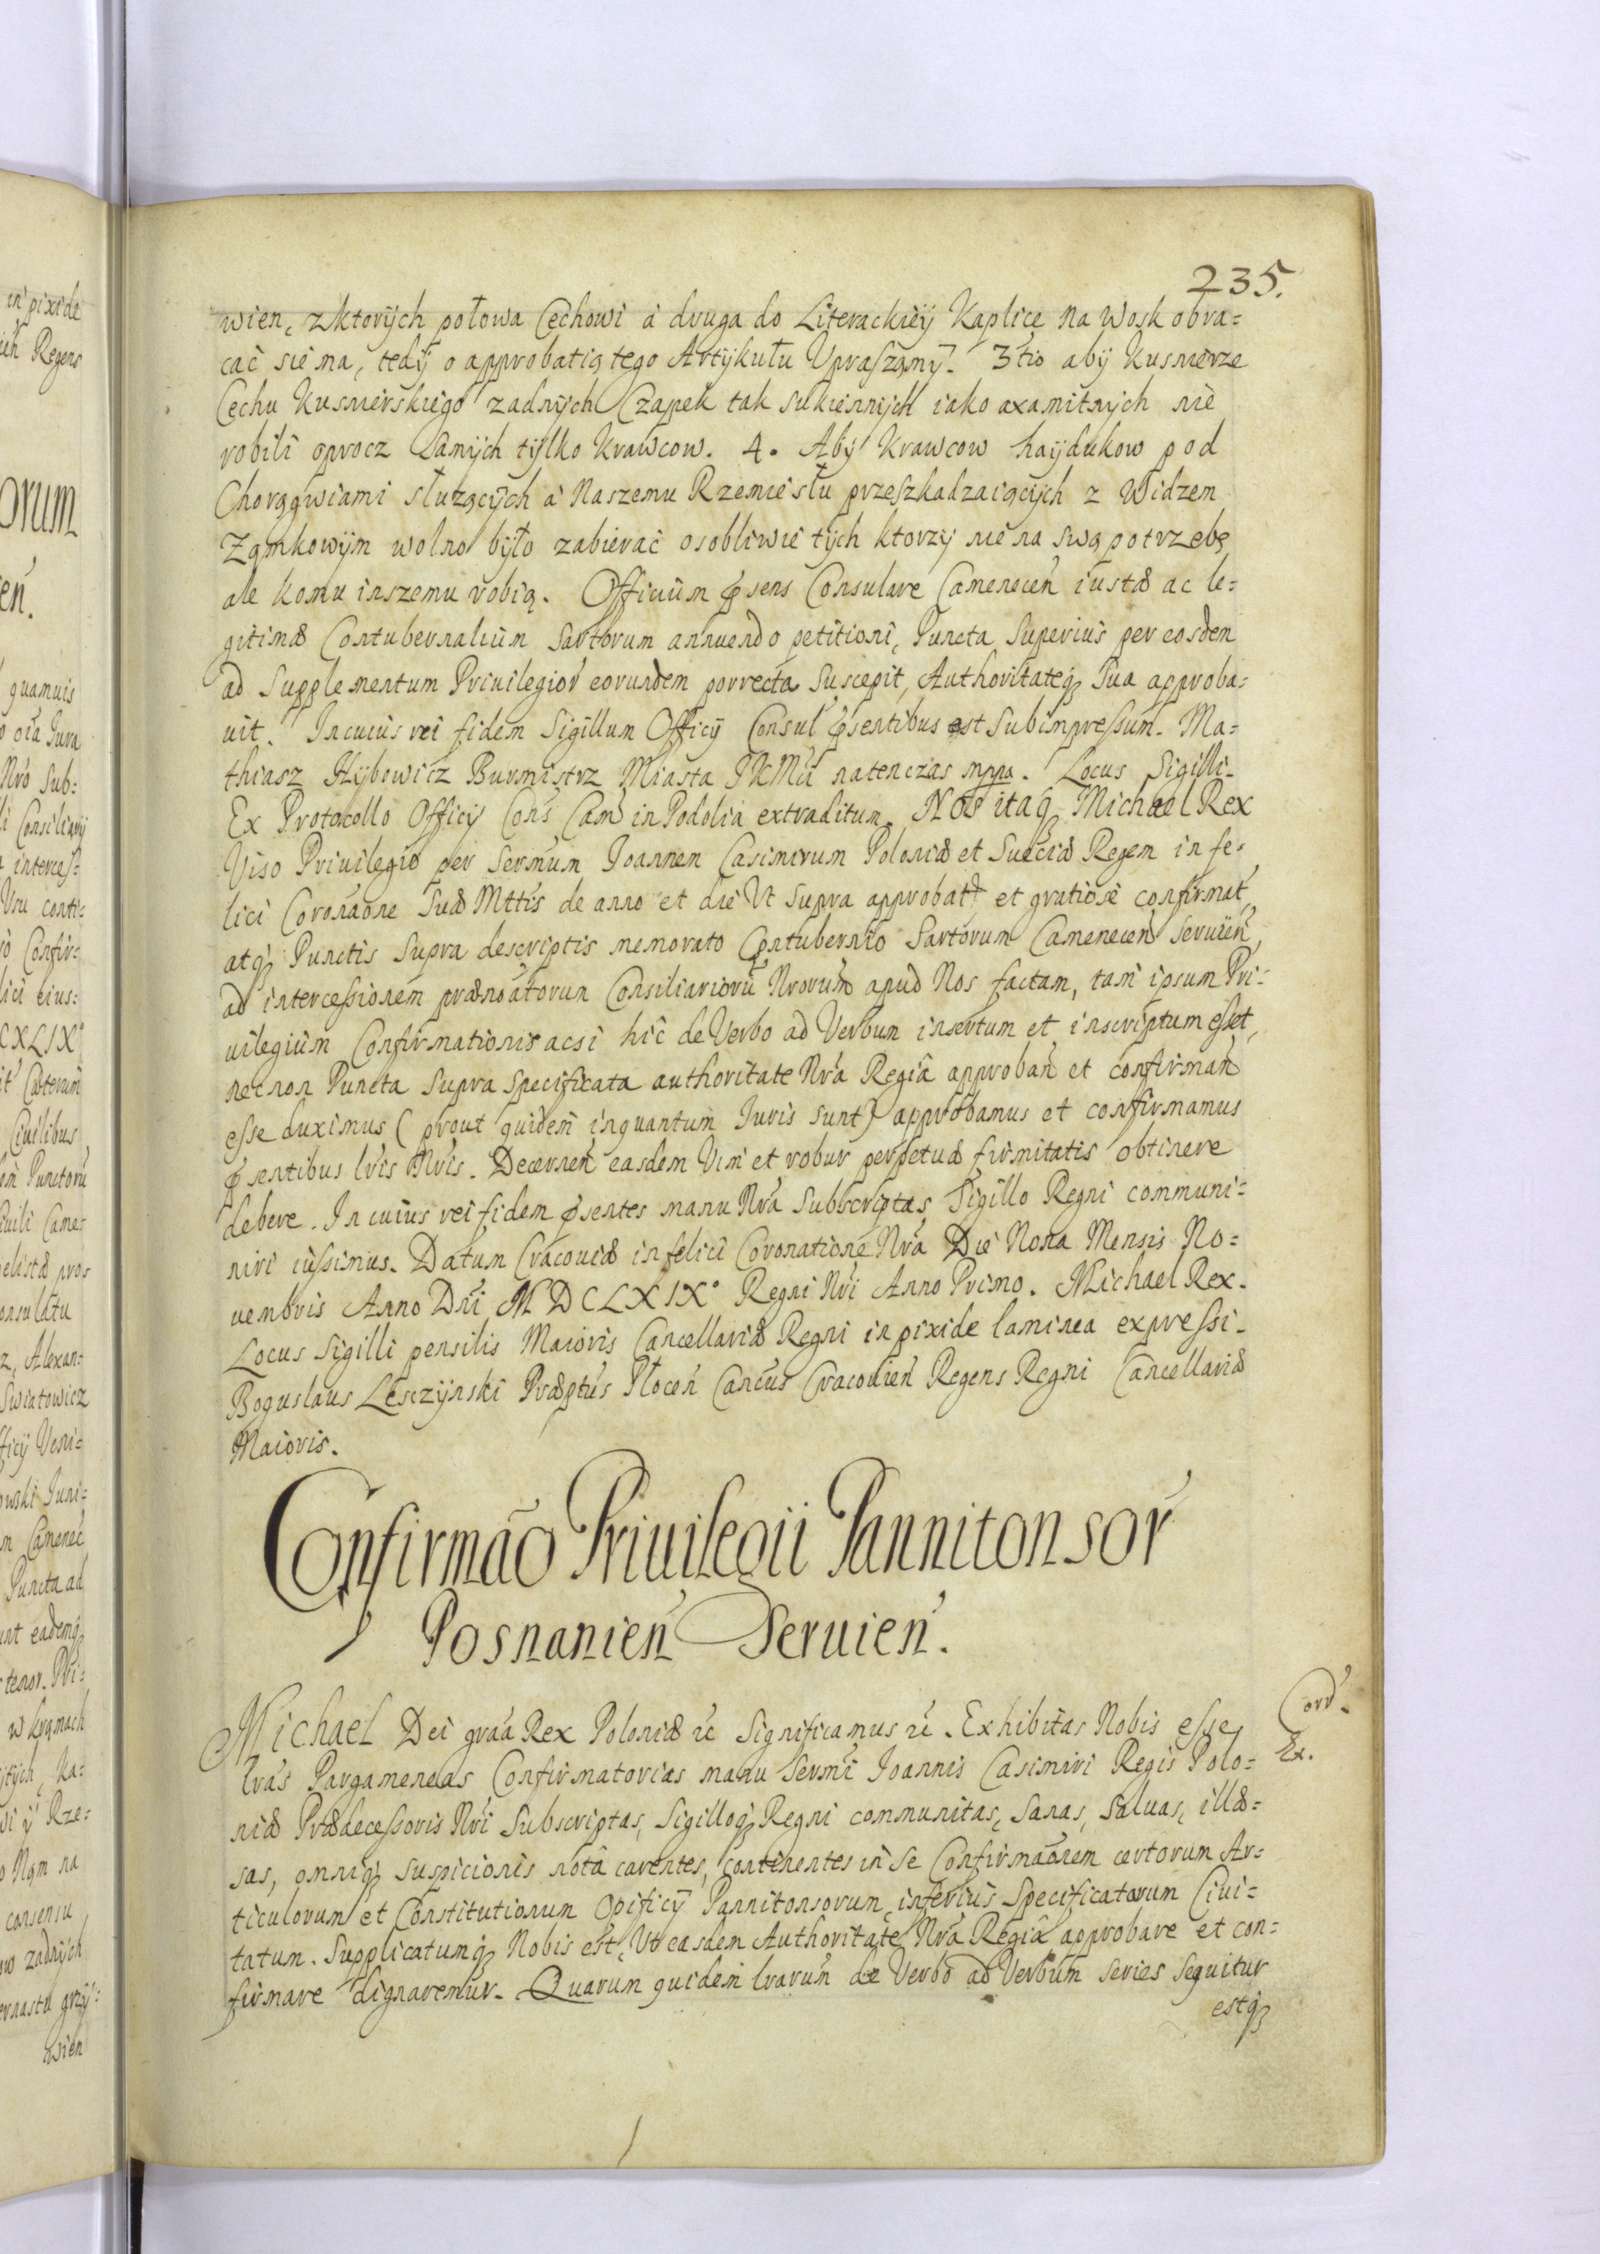 235.
wien, z ktorÿch połowa Cechowi á druga do Literackieÿ Kaplice na Wosk obra=
cać sie ma, tedÿ o approbatią tego Artÿkułu Upraszamÿ. 3tio abÿ kusnierze
Cechu Kusnierskiego zadnÿch Czapek tak sukiennÿch iako axamitnÿch nie
robili oprocz samÿch tÿlko Krawcow. 4. Abÿ Krawcow haÿdukow pod
Chorągwiami słuzącÿch á Naszemu Rzemiesłu przeszkadzaiącÿch z Widzem
Zamkowÿm wolno bÿło zabierać osobliwie tÿch ktorzÿ nie na swą potrzebę
ale komu inszemu robią. Officium p̄sens Consulare Camenecen̄ iustæ ac le=
gitimæ Contubernalium Sartorum annuendo petitioni, Puncta superius per eosdem
ad Supplementum Priuilegior̄ eorundem porrecta Suscepit, Authoritateq̨ Sua approba=
uit. In cuius rei fidem Sigillum Officÿ Consul̄ p̄sentibus est Subimpressum. Ma=
thiasz Hÿbowicz Burmistrz Miasta JKMći natenczas mppa. Locus Sigilli.
Ex Protocollo Officÿ Cons̄ Cam̄ in Podolia extraditum. Nos itaq̨ Michael Rex
Viso Priuilegio per Serm̄um Ioannem Casimirum Poloniæ et Sueciæ Regem in fe=
lici Coronaōne Suæ Mttis de anno et die Ut supra approbat̄ et gratiosè confirmat̄,
atq̨ Punctis supra descriptis memorato Contubernio Sartorum Camenecen̄ Seruien̄,
ad intercessionem prænoātorum Consiliariorū Nrorum̄ apud Nos factam, tam ipsum Pri=
uilegium Confirmationis acsi hic de Verbo ad Verbum insertum et inscriptum esset,
necnon Puncta supra specificata authoritate Nrā Regiâ approban̄ et confirman̄
esse duximus (prout quidem inquantum Iuris sunt) approbamus et confirmamus
p̄sentibus lris Nris. Decernen̄ easdem Vim et robur perpetuæ firmitatis obtinere
debere. In cuius rei fidem p̄sentes manu Nrā subscriptas, Sigillo Regni communi=
niri iussimus. Datum Cracouiæ in felici Coronatione Nrā Die Nona Mensis No=
uembris Anno Dn̄i MDCLXIX° Regni Nri Anno Primo. Michael Rex.
Locus Sigilli pensilis Maioris Cancellariæ Regni in pixide laminea expressi.
Boguslaus Lesczÿnski Præptūs Płocen̄ Cancūs Cracouien̄ Regens Regni Cancellariæ
Maioris.
Confirmāo Priuilegii Pannitonsor̄
Posnanien̄ Seruien̄.
Cord̄.
Ex.
Michael Dei graā Rex Poloniæ rc Significamus rc. Exhibitas Nobis esse
lrās Pargameneas Confirmatorias manu Sermī Ioannis Casimiri Regis Polo=
niæ Prædecessoris Nri Subscriptas, Sigilloq̨ Regni communitas, sanas, saluas, illæ=
sas, omniq̨ suspicionis notâ carentes, continentes in se Confirmaōnem certorum Ar=
ticulorum et Constitutionum Opificÿ Pannitonsorum, inferius specificatorum Ciui=
tatum. Supplicatumq̨ Nobis est, Ut easdem Authoritate Nrā Regiâ approbare et con=
firmare dignaremur. Quarum quidem lrarum̄ de Verbo ad Verbum series sequitur
estq̨